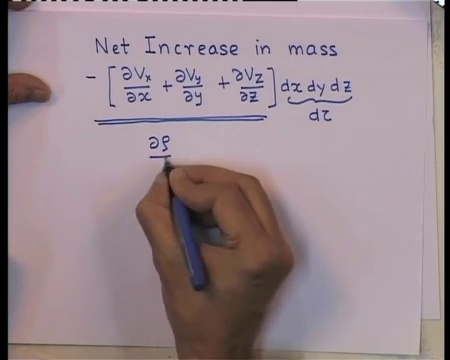 Net Increase in mass
- [ ∂Vx/∂x + ∂Vy/∂y + ∂Vz/∂z ] dx dy dz
dτ
∂ρ